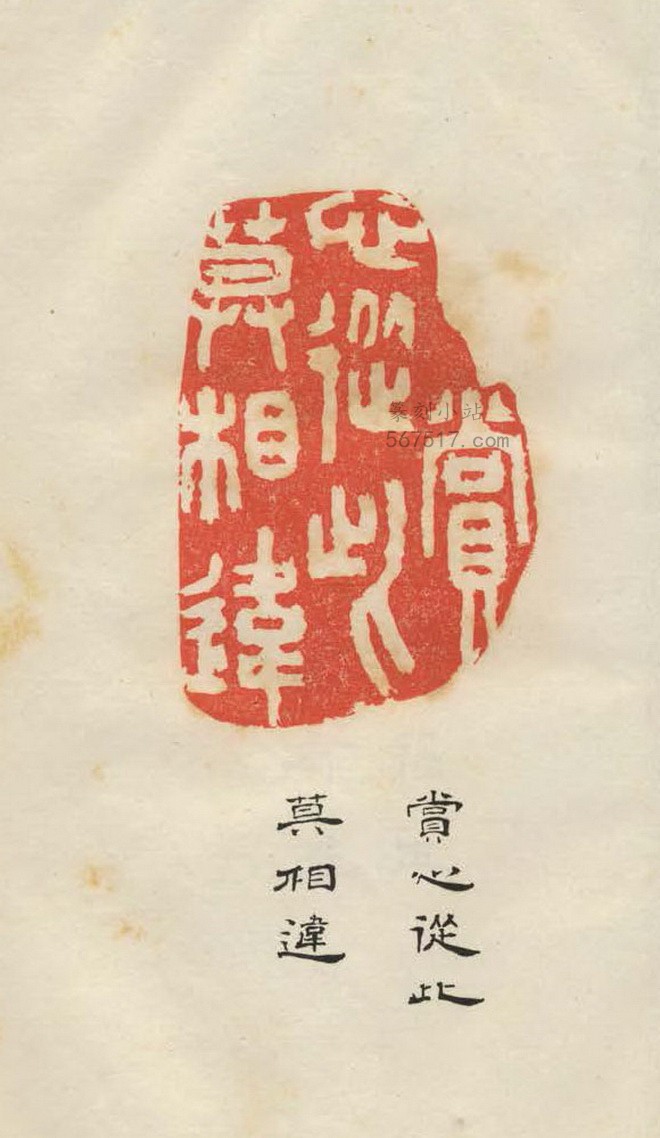 賞
心從此
莫相違
篆刻小站
567517.com
賞心從此
莫相違